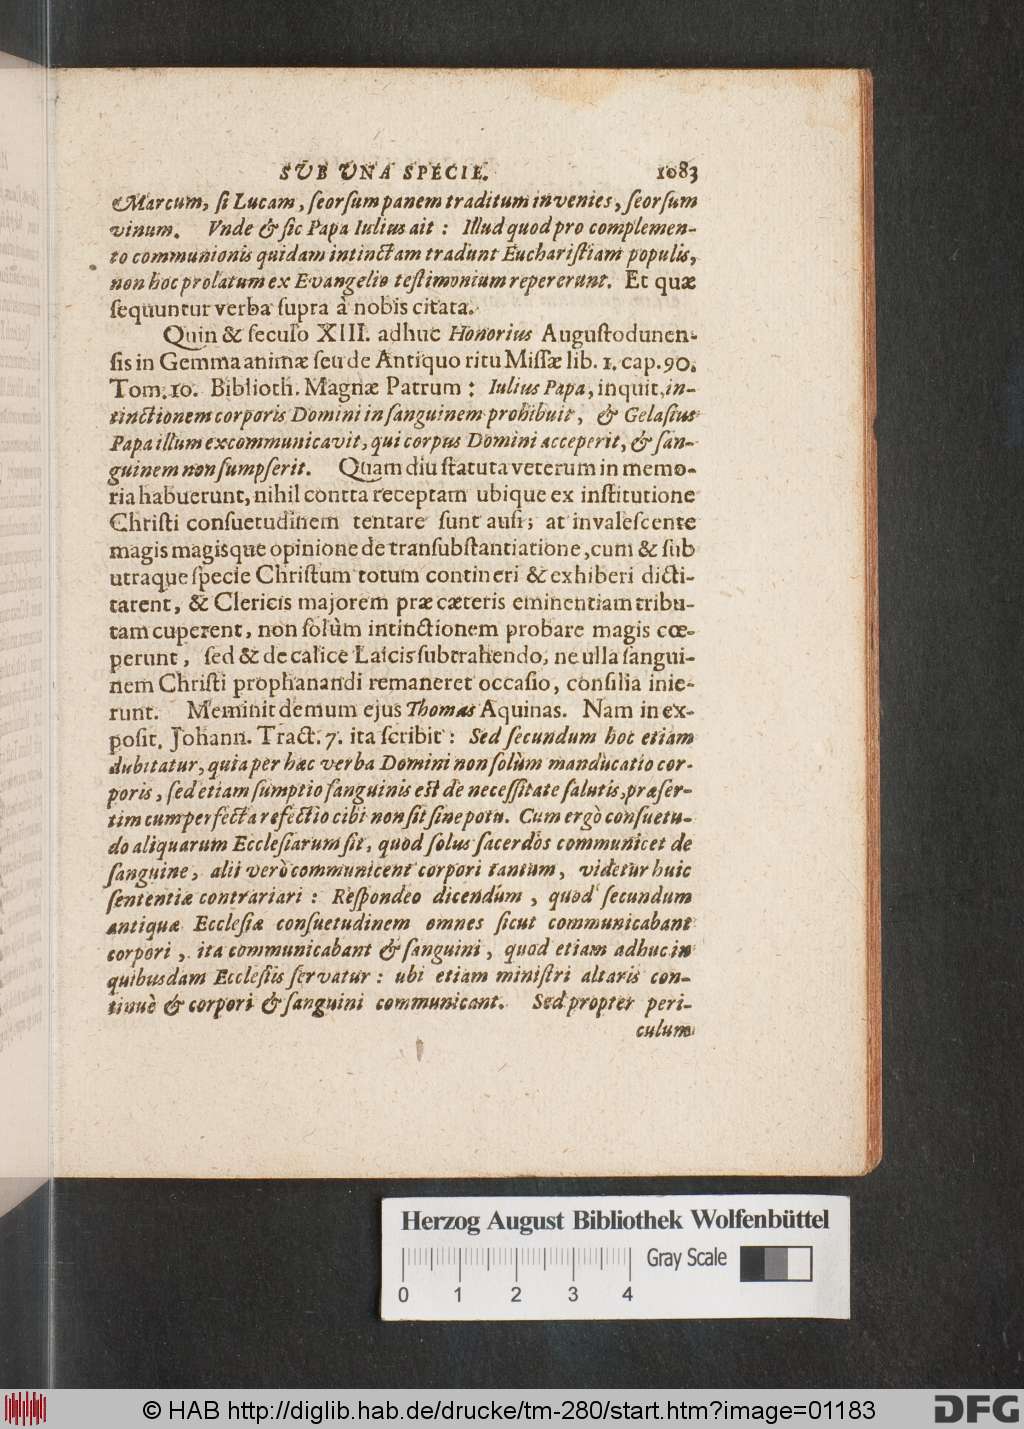 SUB UNA SPECIE. 1083
Marcum, ſi Lucam, ſeorſum panem traditum invenies, ſeorſum
vinum. Vnde & ſic Papa Iulius ait : Illud quod pro complemen-
to communionis quidam intinctam tradunt Euchariſtiam populis,
non hoc prolatum ex Evangelio teſtimonium repererunt. Et quæ
ſequuntur verba ſupra à nobis citata.
Quin & ſeculo XIII. adhuc Honorius Auguſtodunen-
ſis in Gemma animæ ſeu de Antiquo ritu Miſſæ lib. 1. cap. 90.
Tom. 10. Biblioth. Magnæ Patrum : Iulius Papa, inquit, in-
tinctionem corporis Domini in ſanguinem prohibuit, & Gelaſius
Papa illum excommunicavit, qui corpus Domini acceperit, & ſan-
guinem non ſumpſerit. Quam diu ſtatuta veterum in memo-
ria habuerunt, nihil contta receptam ubique ex inſtitutione
Chriſti conſuetudinem tentare ſunt auſi; at invaleſcente
magis magisque opinione de tranſubſtantiatione, cum & ſub
utraque ſpecie Chriſtum totum contineri & exhiberi dicti-
tarent, & Clericis majorem præ cæteris eminentiam tribu-
tam cuperent, non ſolùm intinctionem probare magis cœ-
perunt, ſed & de calice Laicis ſubtrahendo, ne ulla ſangui-
nem Chriſti prophanandi remaneret occaſio, conſilia inie-
runt. Meminit demum ejus Thomas Aquinas. Nam in ex-
poſit. Johann. Tract. 7. ita ſcribit : Sed ſecundum hoc etiam
dubitatur, quia per hæc verba Domini non ſolùm manducatio cor-
poris, ſed etiam ſumptio ſanguinis eſt de neceſſitate ſalutis, præſer-
tim cum perfecta refectio cibi non ſit ſine potu. Cum ergò conſuetu-
do aliquarum Eccleſiarum ſit, quod ſolus ſacerdos communicet de
ſanguine, alii verò communicent corpori tantum, videtur huic
ſententiæ contrariari : Reſpondeo dicendum, quod ſecundum
antiquæ Eccleſiæ conſuetudinem omnes ſicut communicabant
corpori, ita communicabant & ſanguini, quod etiam adhuc in
quibusdam Eccleſiis ſervatur : ubi etiam miniſtri altaris con-
tinuè & corpori & ſanguini communicant. Sed propter peri-
culum
Herzog August Bibliothek Wolfenbüttel
Gray Scale
0 1 2 3 4
© HAB http://diglib.hab.de/drucke/tm-280/start.htm?image=01183
DFG